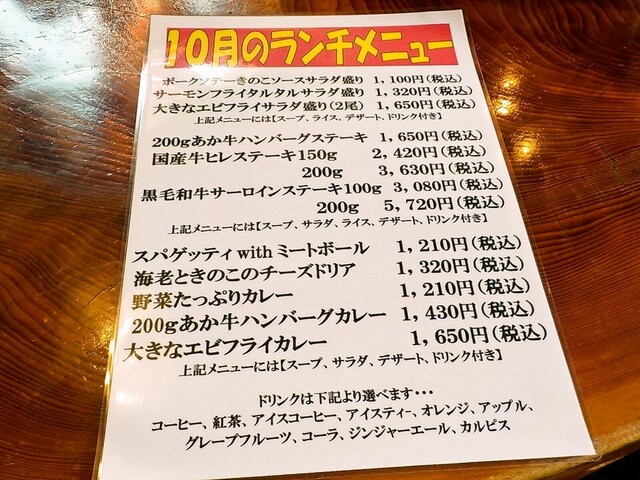 10月のランチメニュー
ポークソテーきのこソースサラダ盛り 1,100円(税込)
サーモンフライタルタルサラダ盛り 1,320円(税込)
大きなエビフライサラダ盛り(2尾) 1,650円(税込)
上記メニューには【スープ、ライス、デザート、ドリンク付き】
200gあか牛ハンバーグステーキ 1,650円(税込)
国産牛ヒレステーキ150g 2,420円(税込)
200g 3,630円(税込)
黒毛和牛サーロインステーキ100g 3,080円(税込)
200g 5,720円(税込)
上記メニューには【スープ、サラダ、ライス、デザート、ドリンク付き】
スパゲッティwithミートボール 1,210円(税込)
海老ときのこのチーズドリア 1,320円(税込)
野菜たっぷりカレー 1,210円(税込)
200gあか牛ハンバーグカレー 1,430円(税込)
大きなエビフライカレー 1,650円(税込)
上記メニューには【スープ、サラダ、デザート、ドリンク付き】
ドリンクは下記より選べます・・・
コーヒー、紅茶、アイスコーヒー、アイスティ-、オレンジ、アップル、
グレープフルーツ、コーラ、ジンジャーエール、カルピス